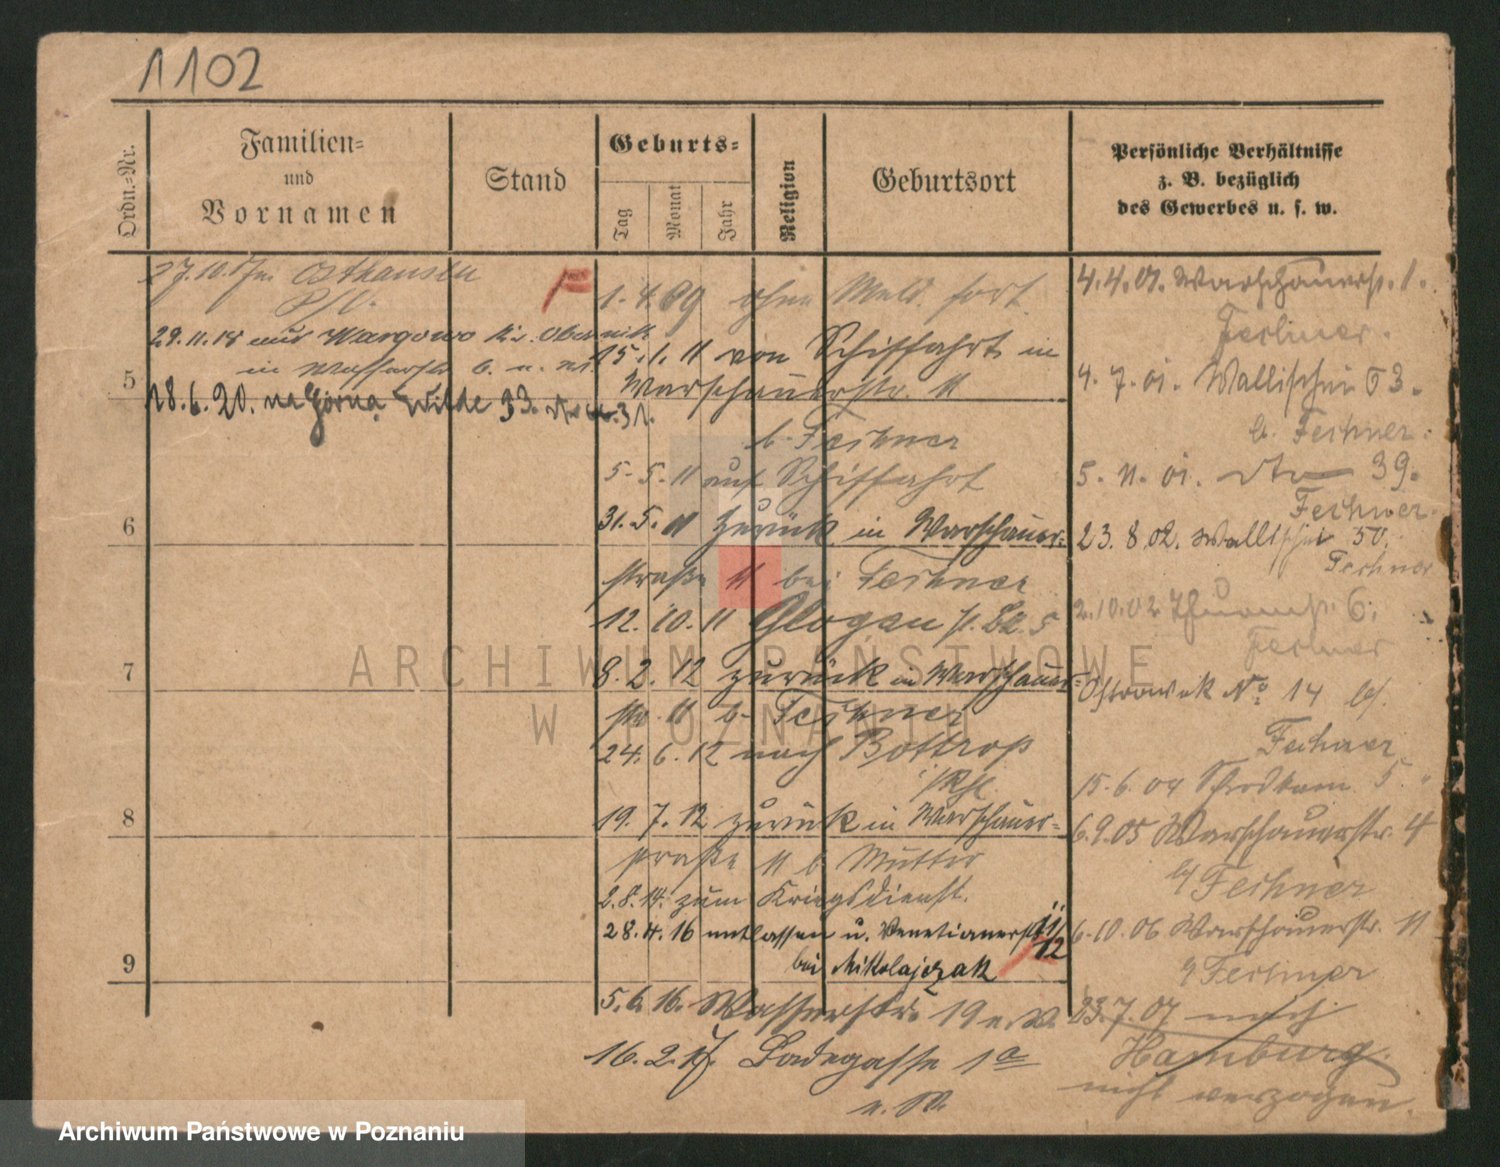 1102
Ordn.-Nr.
Familien-
und
Vornamen
Stand
Geburts-
Tag
Monat
Jahr
Religion
Geburtsort
Persönliche Verhältnisse
z. B. bezüglich
des Gewerbes u. s. w.
27.10.17 Osthausen
29.11.18 aus Wargowo Kr. Obornik
in Wasserstr 6. u. 
5
18.6.20. na Górna Wilde 93. 31.
6
7
8
9
1.4.09 ohne Meld. fort
15.1.11 von Schiffahrt in
Warschauerstr. 11
b. Fechner
5.5.11 auf Schiffahrt
31.5.11 zurück in Warschauer-
straße 11 bei Fechner
12.10.11 Glogau
8.2.12 zurück in Warschauer-
str 11 b. Fechner
24.6.12 nach Bottrop
19.7.12 zurück in Warschauer-
straße 11 b Mutter
2.8.14. zum Kriegsdienst.
28.4.16 entlassen u. Venetianerstr 11/12
bei Mikolajczak
5.6.16. Wasserstr. 19 u. W.
16.2.17. Badegasse 1a
u. W.
4.4.01. Warschauerstr. 1.
Fechner.
4.7.01. Wallischei 63.
b. Fechner.
5.11.01. dto 39.
Fechner.
23.8.02. Wallischei 50.
Fechner
2.10.02 Thurmstr. 6.
Fechner
Ostrowek No. 14 bei
Fechner
15.6.04 Schrodkam. 5
6.9.05 Warschauerstr. 4
bei Fechner
6.10.06 Warschauerstr. 11
Fechner
23.7.07 nach
Hamburg.
nicht verzogen.
ARCHIWUM PAŃSTWOWE
W POZNANIU
Archiwum Państwowe w Poznaniu